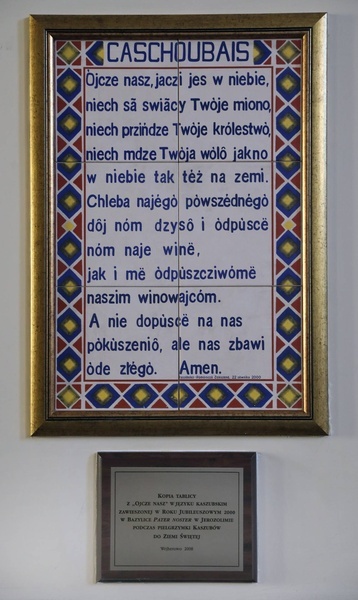 CASCHOUBAIS
Òjcze nasz, jaczi jes w niebie,
niech sã swiãcy Twòje miono,
niech przińdze Twòje królestwò,
niech mdze Twòja wòlô jakno
w niebie tak téż na zemi.
Chleba najégò pòwszédnégò
dôj nóm dzysô i òdpùscë
nóm naje winë,
jak i më òdpùszcziwómë
naszim winowajcóm.
A nie dopùscë na nas
pòkùszeniô, ale nas zbawi
òde złégò. Amen.
KOPIA TABLICY
Z „ÒJCZE NASZ” W JĘZYKU KASZUBSKIM
ZAWIESZONEJ W ROKU JUBILEUSZOWYM 2000
W BAZYLICE PATER NOSTER W JEROZOLIMIE
PODCZAS PIELGRZYMKI KASZUBÓW
DO ZIEMI ŚWIĘTEJ